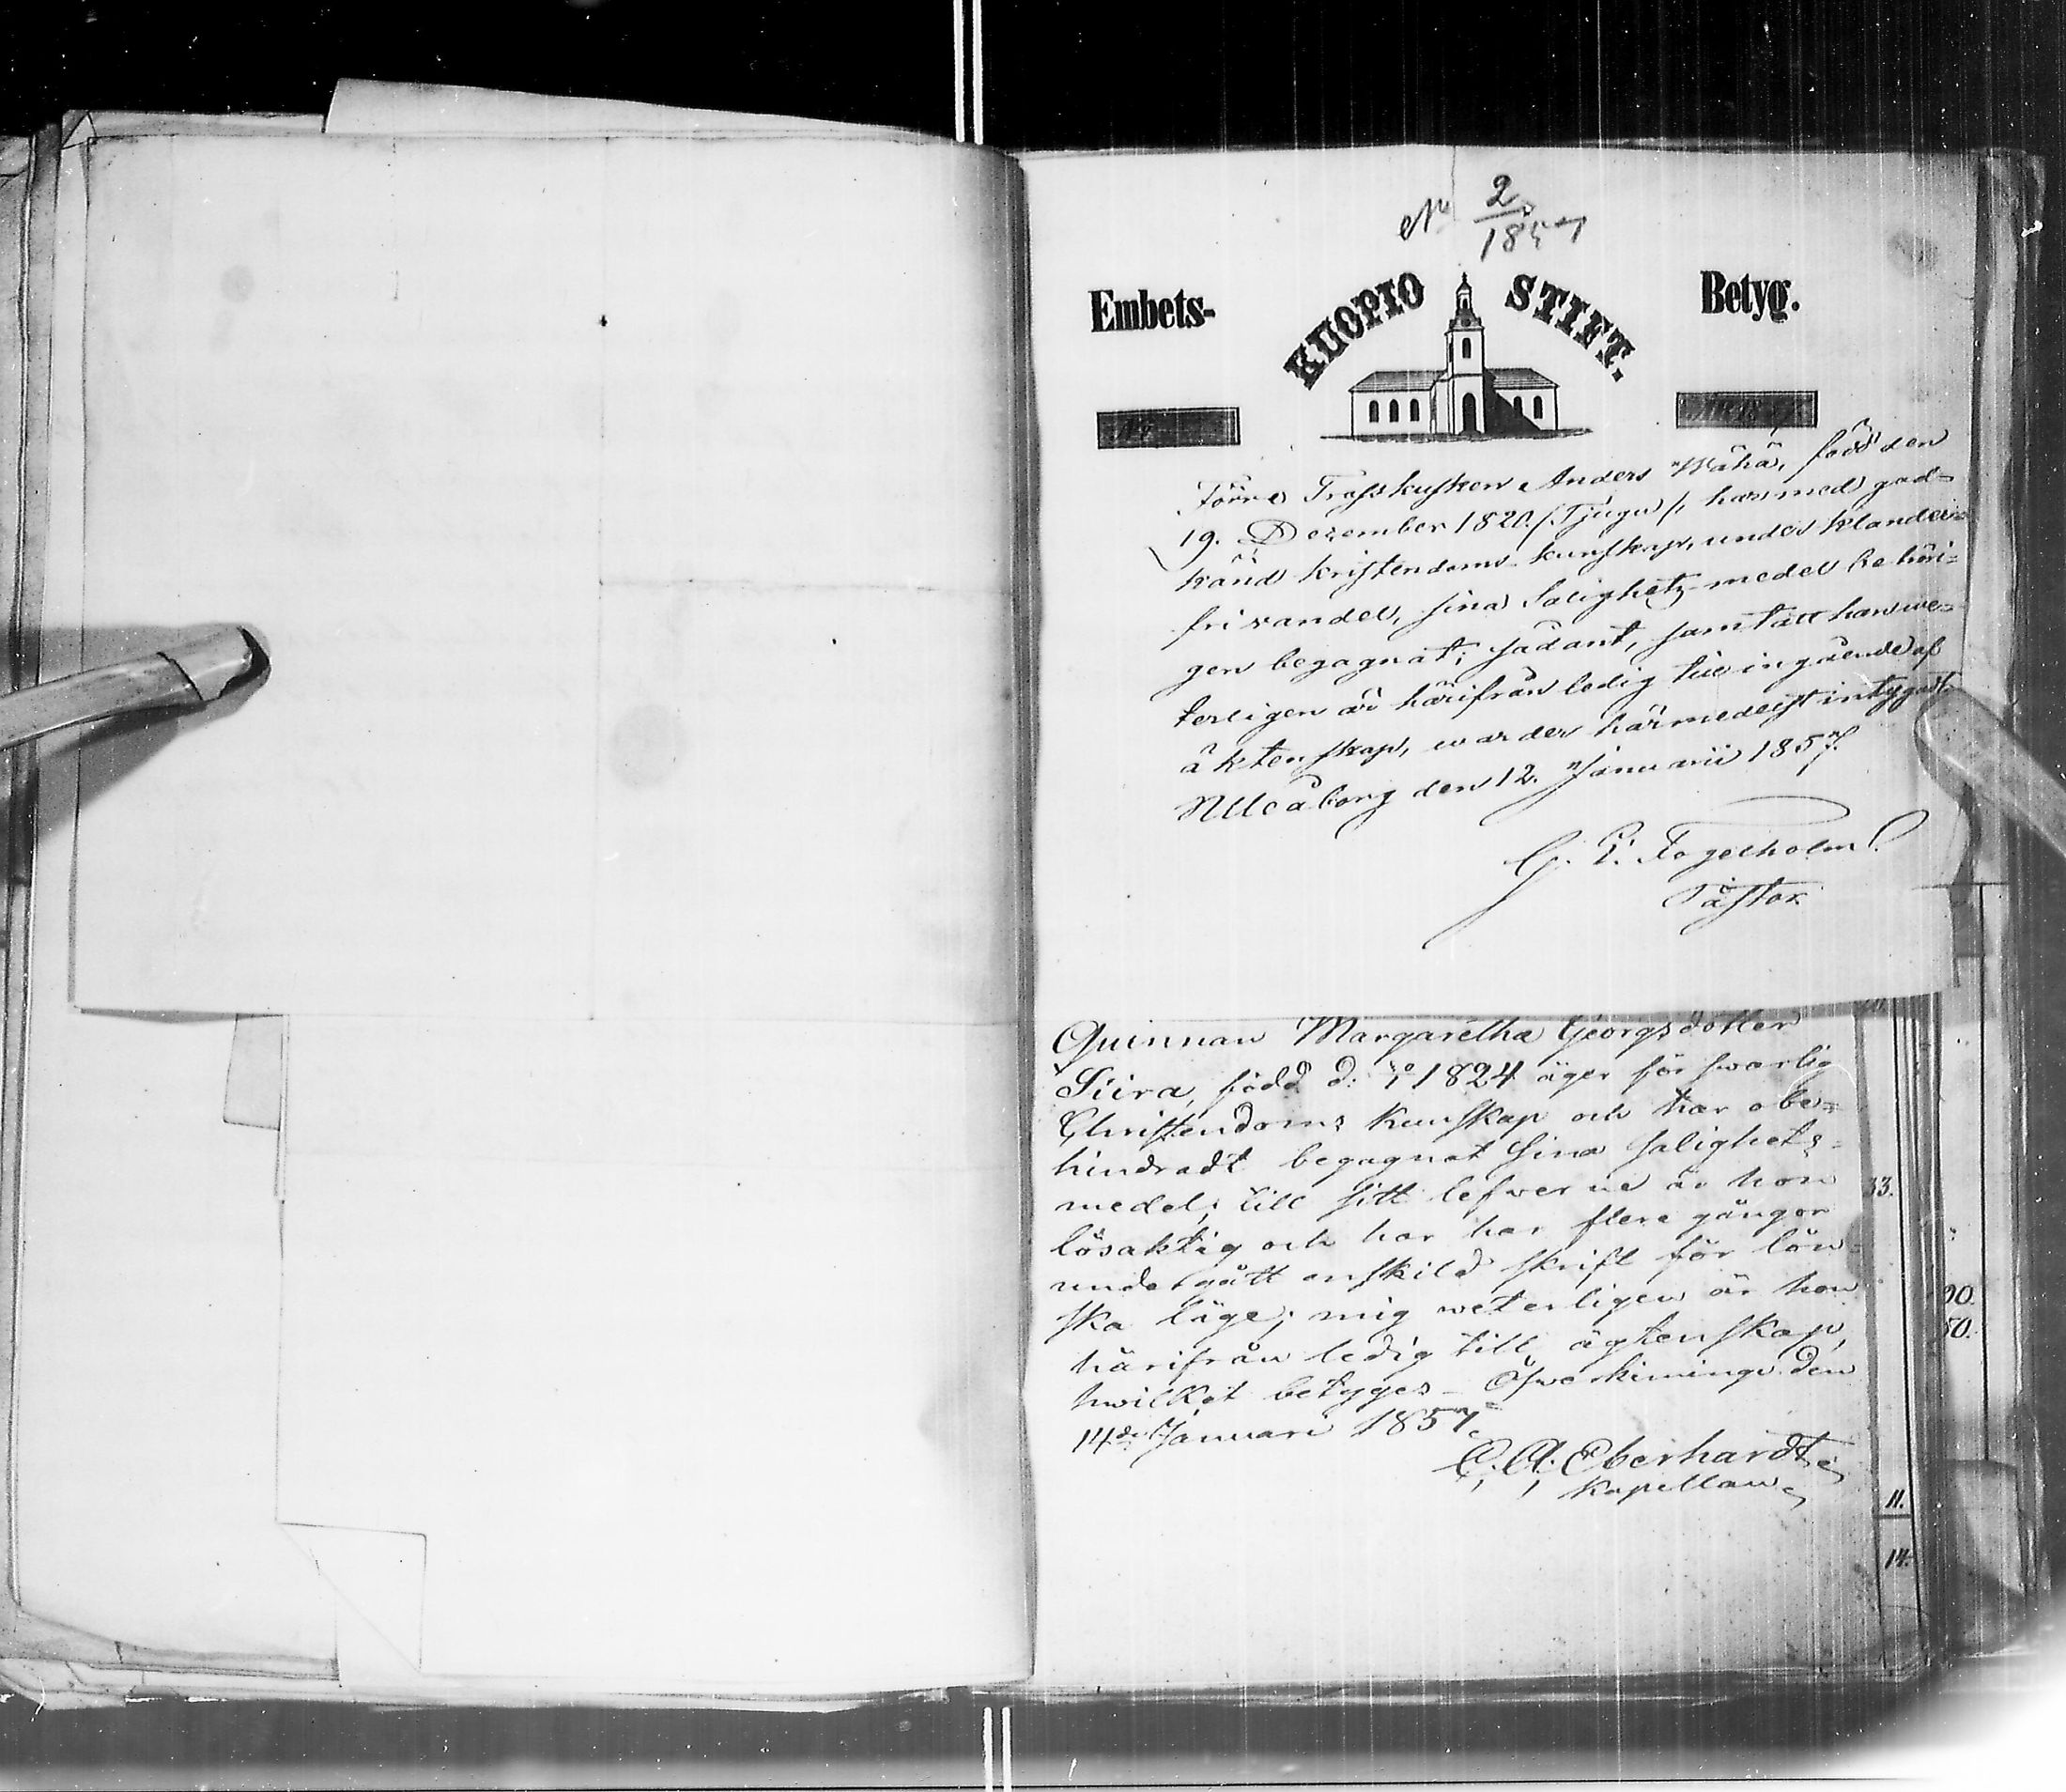 No 2/1857
Embets- KUOPIO STIFT. Betyg.
No
Förre Trosskusken Anders Wähä, född den
19. Dezember 1820. (Tjugu), har med god-
känd kristendoms-kunskap, under klander-
fri vandel, sina Salighets-medel behöri-
gen begagnat; sådant, samt att han we-
terligen är härifrån ledig till ingående af
äktenskap, warder härmedelst intygadt.
Uleåborg den 12. Januarii 1857.
Fogelholm.
Pastor.
Quinnan Margaretha Georgsdotter
Siira, född d: 1824 äger förswarlig
Christendoms kunskap och har obe-
hindradt begagnat sina salighets-
medel; till sitt lefwerne är hon
lösaktig och har har flere gånger
undergått enskild skrift för lön-
ska läge; mig weterligen är hon
härifrån ledig till ägtenskap,
hwilket betyges – Öfwerkiminge den
14de Januari 1857.
C. A. Eberhardt
Kapellan
33.
00.
50.
11.
14.